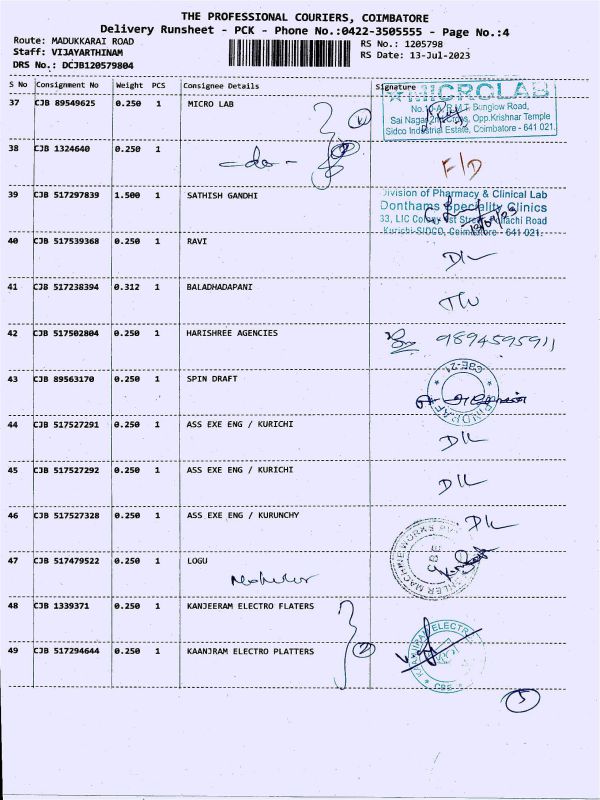 THE PROFESSIONAL COURIERS, COIMBATORE
Delivery Runsheet - PCK - Phone No.:0422-3505555 - Page No.:4
Route: MADUKKARAI ROAD
Staff: VIJAYARTHINAM
DRS No.: DCJB120579804
RS No.: 1205798
RS Date: 13-Jul-2023
S No Consignment No Weight PCS Consignee Details Signature
37 CJB 89549625 0.250 1 MICRO LAB
MICROLAB
Sungiow Road,
Sai Nagar, Opp.Krishnar Temple
Sidco Industrial Estate, Coimbatore - 641 021.
38 CJB 1324640 0.250 1 -do- F/D
39 CJB 517297839 1.500 1 SATHISH GANDHI
Division of Pharmacy & Clinical Lab
Donthams Speciality Clinics
33, LIC Colony 1st Street Road
Kurichi-SIDCO, Coimbatore - 641 021.
40 CJB 517539368 0.250 1 RAVI D/L
41 CJB 517238394 0.312 1 BALADHADAPANI
42 CJB 517502804 0.250 1 HARISHREE AGENCIES 9894595911
43 CJB 89563170 0.250 1 SPIN DRAFT
CBE-21
44 CJB 517527291 0.250 1 ASS EXE ENG / KURICHI D/L
45 CJB 517527292 0.250 1 ASS EXE ENG / KURICHI D/L
46 CJB 517527328 0.250 1 ASS EXE ENG / KURUNCHY D/L
47 CJB 517479522 0.250 1 LOGU
CBE
48 CJB 1339371 0.250 1 KANJEERAM ELECTRO FLATERS
49 CJB 517294644 0.250 1 KAANJRAM ELECTRO PLATTERS 2
5